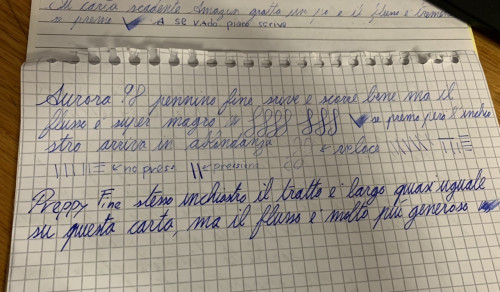 Su carta scadente Amazon gratta un po' e il flusso è tremendo
se premo ← A se vado piano scrive
Aurora 98 pennino fine scrive e scorre bene ma il
flusso è super magro ← se premo però l'inchio
stro arriva in abbondanza ← veloce
← no press ← pressione
Preppy Fine stesso inchiostro il tratto è largo quasi uguale
su questa carta, ma il flusso è molto più generoso